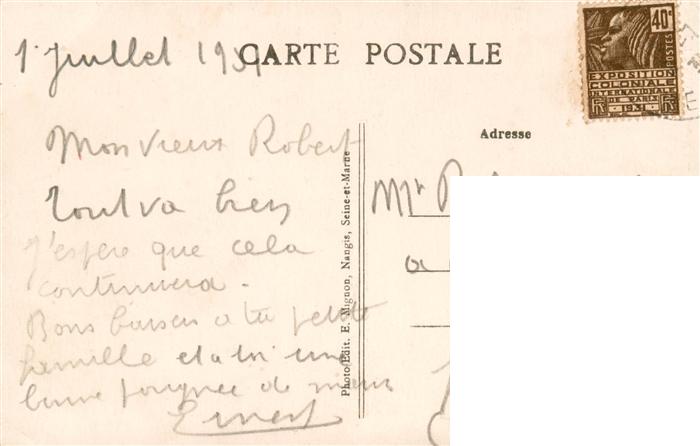 1 juillet 1931
CARTE POSTALE
40c
POSTES
EXPOSITION
COLONIALE
INTERNATIONALE
DE PARIS
RF 1931 RF
Adresse
Mon vieux Robert
Tout va bien
J'espère que cela
continuera.
Bons baisers a ta petite
famille et a toi une
bonne poignee de mains
Ernest
Photo-Edit. E. Mignon, Nangis, Seine-et-Marne
Mr
a